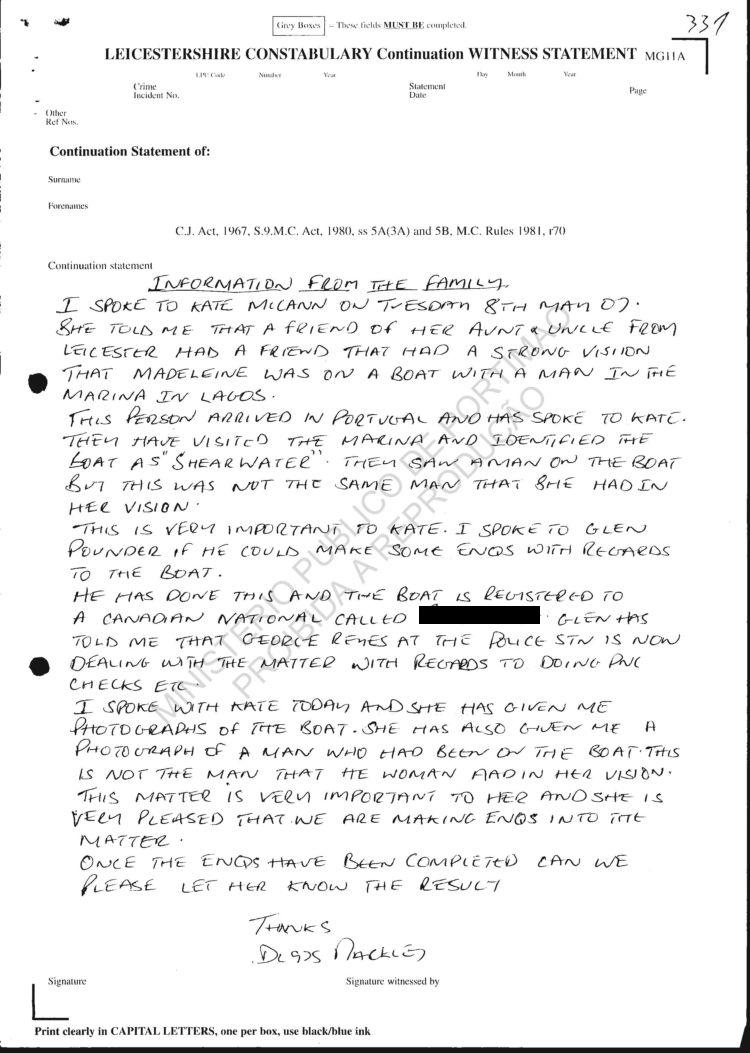 Grey Boxes – These fields MUST BE completed.
331
LEICESTERSHIRE CONSTABULARY Continuation WITNESS STATEMENT MG11A
LPU Code Number Year Day Month Year
Crime
Incident No.
Statement
Date
Page
Other
Ref Nos.
Continuation Statement of:
Surname
Forenames
C.J. Act, 1967, S.9.M.C. Act, 1980, ss 5A(3A) and 5B, M.C. Rules 1981, r70
Continuation statement
INFORMATION FROM THE FAMILY.
I SPOKE TO KATE MCCANN ON TUESDAY 8TH MAY 07.
SHE TOLD ME THAT A FRIEND OF HER AUNT & UNCLE FROM
LEICESTER HAD A FRIEND THAT HAD A STRONG VISIION
THAT MADELEINE WAS ON A BOAT WITH A MAN IN THE
MARINA IN LAGOS.
THIS PERSON ARRIVED IN PORTUGAL AND HAS SPOKE TO KATE.
THEY HAVE VISITED THE MARINA AND IDENTIFIED THE
BOAT AS "SHEARWATER". THEY SAW A MAN ON THE BOAT
BUT THIS WAS NOT THE SAME MAN THAT SHE HAD IN
HER VISION.
THIS IS VERY IMPORTANT TO KATE. I SPOKE TO GLEN
POUNDER IF HE COULD MAKE SOME ENQS WITH REGARDS
TO THE BOAT.
HE HAS DONE THIS AND THE BOAT IS REGISTERED TO
A CANADIAN NATIONAL CALLED . GLEN HAS
TOLD ME THAT GEORGE REYES AT THE POLICE STN IS NOW
DEALING WITH THE MATTER WITH REGARDS TO DOING PNC
CHECKS ETC.
I SPOKE WITH KATE TODAY AND SHE HAS GIVEN ME
PHOTOGRAPHS OF THE BOAT. SHE HAS ALSO GIVEN ME A
PHOTOGRAPH OF A MAN WHO HAD BEEN ON THE BOAT. THIS
IS NOT THE MAN THAT THE WOMAN HAD IN HER VISION.
THIS MATTER IS VERY IMPORTANT TO HER AND SHE IS
VERY PLEASED THAT WE ARE MAKING ENQS INTO THE
MATTER.
ONCE THE ENQS HAVE BEEN COMPLETED CAN WE
PLEASE LET HER KNOW THE RESULT
THANKS
MARKLEY
Signature
Signature witnessed by
Print clearly in CAPITAL LETTERS, one per box, use black/blue ink
MINISTERIO PUBLICO DE PORTIMAO
PROIBIDA A REPRODUÇÃO